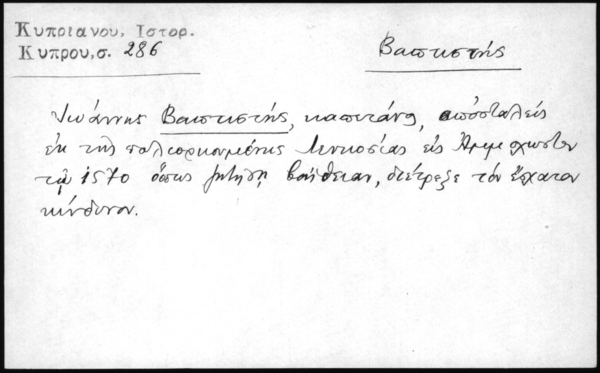 Κυπριανου, Ιστορ.
Κυπρου, σ. 286
Βαπτιστής
Ἰωάννης Βαπτιστής, καπιτάνος, ἀποσταλείς
ἐκ τῆς πολιορκουμένης Λευκοσίας εἰς Ἀμμόχωστον
τῷ 1570 ὅπως ζητήσῃ βοήθειαν, διέτρεξε τὸν ἔσχατον
κίνδυνον.